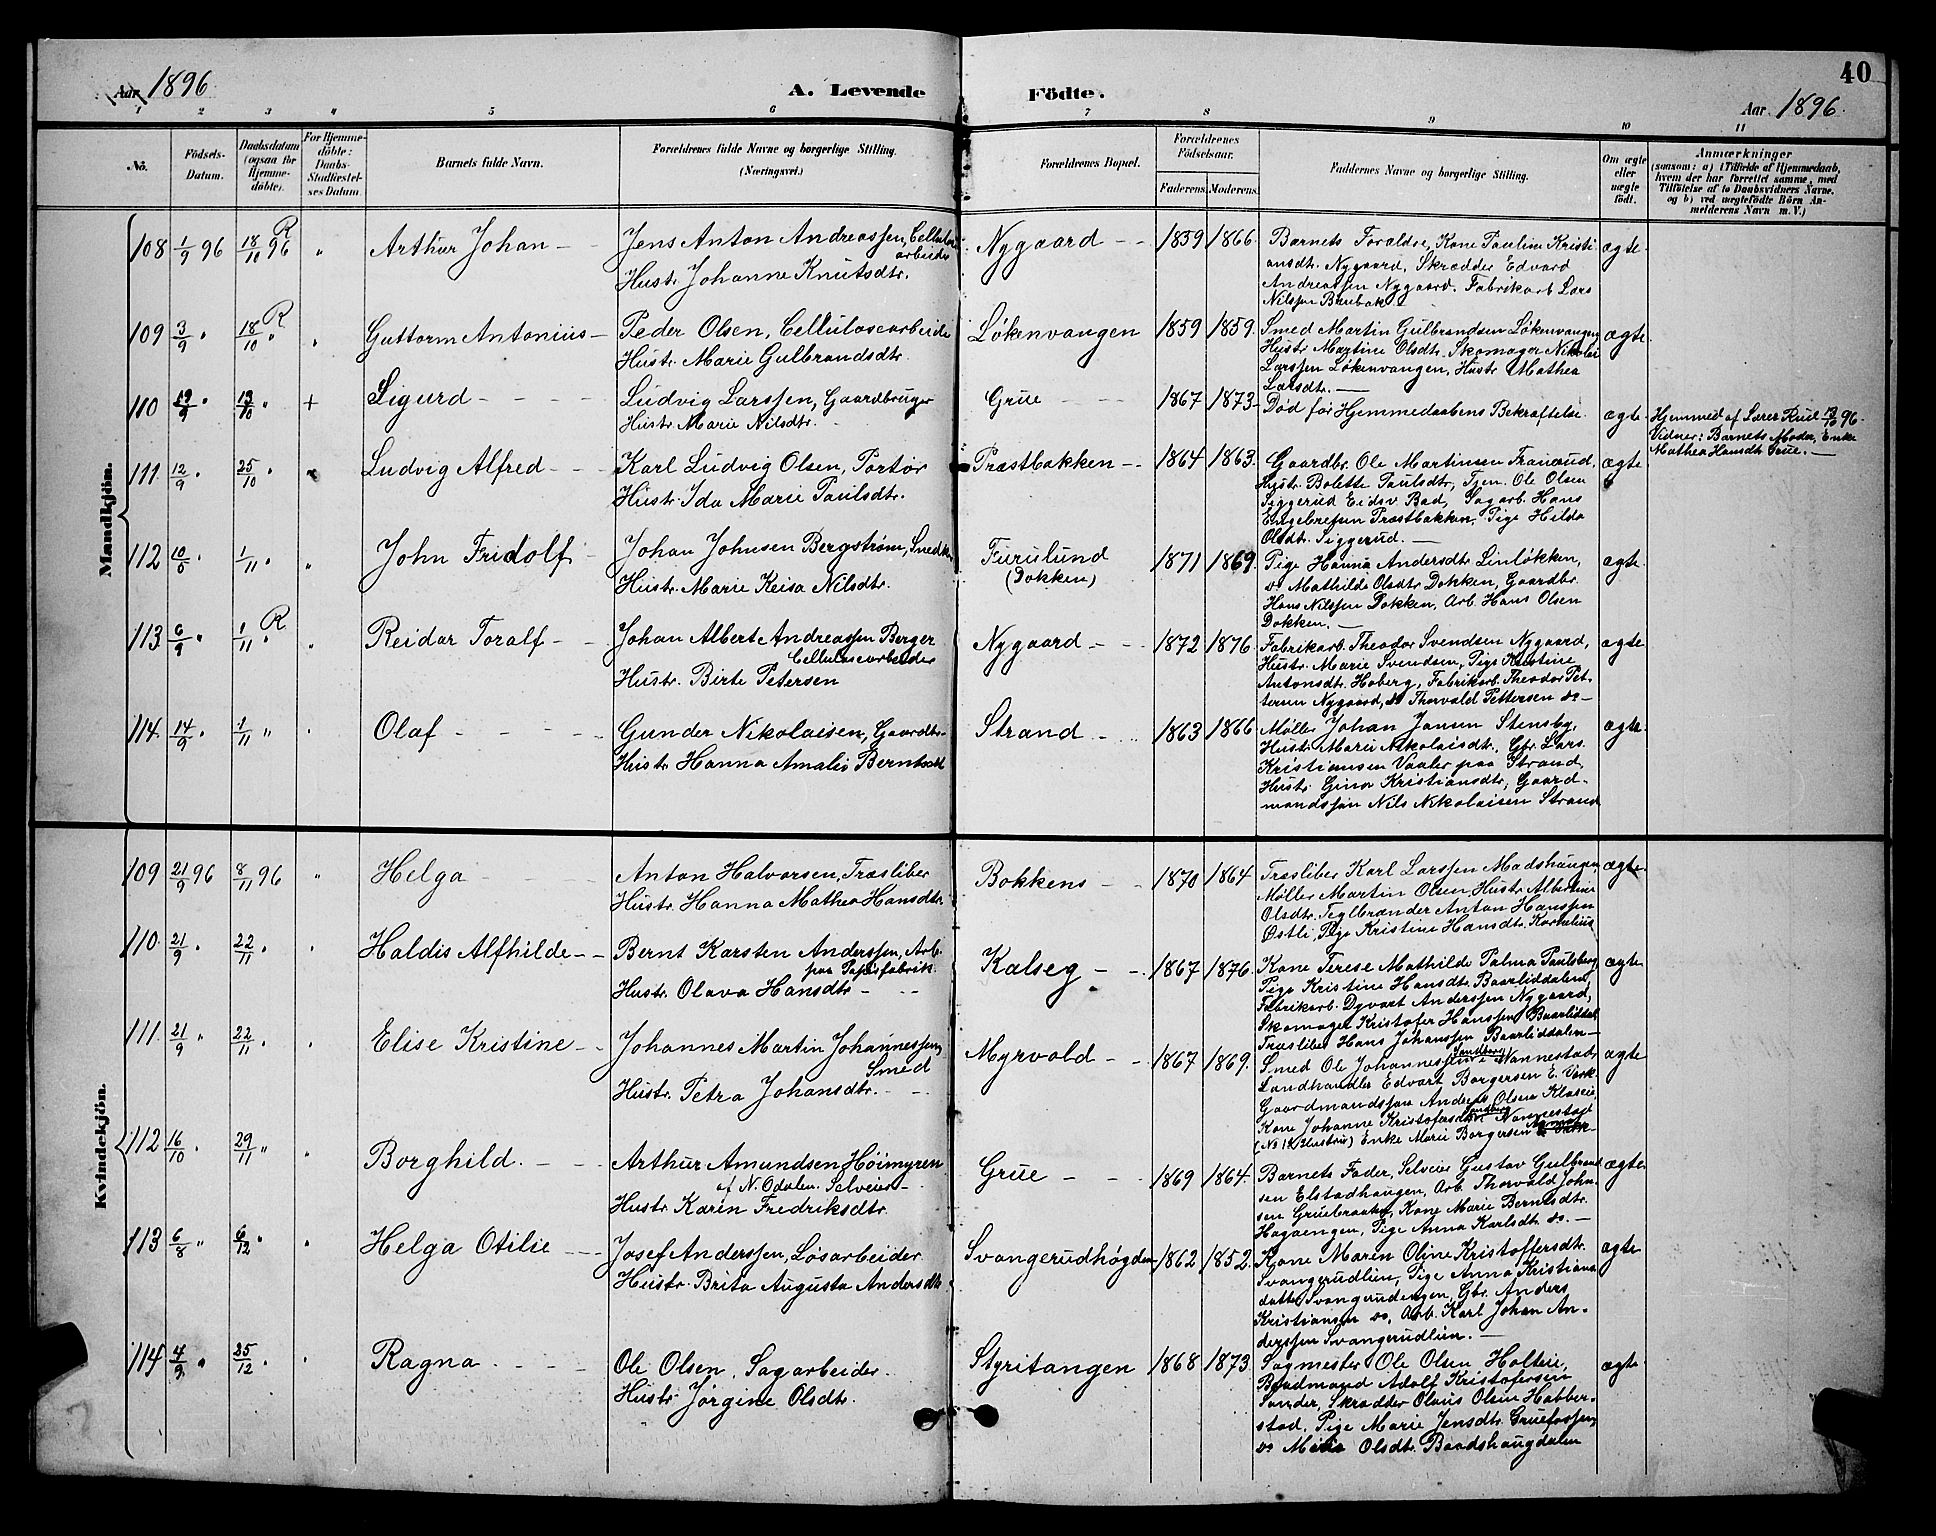 Aar 1896
A. Levende Födte.
40
Aar 1896.
1 2 3 4 5 6 7 8 9 10 11
No.
Födsels-
Datum.
Daabsdatum
(ogsaa for
Hjemme-
döbte).
For Hjemme-
döbte:
Daabs-
Stadfæstel-
ses Datum.
Barnets fulde Navn.
Forældrenes fulde Navne og borgerlige Stilling.
(Næringsvei.)
Forældrenes Bopæl.
Forældrenes
Födselsaar.
Faderens. Moderens.
Faddernes Navne og borgerlige Stilling.
Om ægte
eller
uægte
födt.
Anmærkninger
(saasom: a) i Tilfælde af Hjemmedaab,
hvem der har forrettet samme, med
Tilföielse af to Daabsvidners Navne.
og b) ved uægtefödte Börn An-
melderens Navn m. V.)
Mandkjön.
108 1/9 96 18/10 96 R " Arthur Johan
Jens Anton Andreassen, Cellulose
arbeider
Hustr. Johanne Knutsdtr.
Nygaard 1859 1866.
Barnets Forældre, Kone Pauline Kristi
ansdt. Nygaard, Skrædder Edvard
Andreassen Nygaard. Fabrikarb. Lars
Nilssen Brubak
ægte
109 3/9 " 18/10 " R " Guttorm Antonius
Peder Olsen, Cellulosearbeide
Hustr. Marie Gulbrandsdtr.
Løkenvangen 1859 1859.
Smed Martin Gulbrandsen Løkenvangen
Hustr. Martine Olsdtr. Skomager Nikolai
Larssen Løkenvangen, Hustr Mathea
Larsdtr.
ægte.
110 19/9 " 13/10 " + Sigurd
Ludvig Larssen, Gaardbruger
Hustr. Marie Nilsdtr.
Grue 1867 1873
Død før Hjemmedaabens Bekræftelse.
ægte
Hjemmed. af Lærer Rue 13/10 96.
Vidner: Barnets Moder, Enke
Mathea Hansdt. Grue.
111. 12/9 " 25/10 " Ludvig Alfred
Karl Ludvig Olsen, Portør
Hustr. Ida Marie Paulsdtr.
Præstbakken 1864 1863.
Gaardbr. Ole Martinsen Franærud,
Hustr. Bolette Paulsdtr, Tjen. Ole Olsen
Siggerud Eidsv Bad, Sagarb. Hans
Engebretsen Præstbakken, Pige Hilda
Olsdtr. Siggerud.
ægte
112 " 1/11 " " John Fridolf
Johan Johnsen Bergstrøm, Smed
Hustr. Marie Keisa Nilsdtr.
Furulund
(Dokken)
1871 1869.
Pige Hanna Andersdtr Linløkken,
do Mathilde Olsdtr Dokken, Gaardbr.
Hans Nilssen Dokken, Arb. Hans Olsen
Dokken.
ægte.
113 6/9 " 1/11 " R " Reidar Toralf
Johan Albert Andreassen Berger
Cellulosearbeider
Hustr. Birte Petersen
Nygaard 1872 1876.
Fabrikarb. Theodor Svendsen Nygaard,
Hustr. Marie Svendsen, Pige Kristine
Antonsdtr. Hoberg, Fabrikarb. Theodor Pet-
tersen Nygaard, do Thorvald Pettersen do
ægte
114. 14/9 " 1/11 " " Olaf
Gunder Nikolaisen, Gaardbr.
Hustr. Hanna Amalie Berntsdt
Strand 1863 1866
Møller Johan Jansen Stensby,
Hustr. Marie Nikolaisdtr. Gbr. Lars
Kristiansen Vaaler paa Strand,
Hustr. Gina Kristiansdtr, Gaard-
mandssøn Nils Nikolaisen Strand
ægte
Kvindekjön.
109 21/9 96 8/11 96 " Helga
Anton Halvorsen, Træsliber
Hustr. Hanna Mathea Hansdtr.
Bokkens 1870 1864
Træsliber Karl Larssen Madshaugen
Møller Martin Olsen, Hustr. Albertine
Olsdtr. Teglbrænder Anton Hanssen
Østli, Pige Kristine Hansdt. Kornelius
ægte
110. 21/9 " 22/11 " " Haldis Alfhilde
Bernt Karsten Anderssen, Arb.
paa Papirfabrik.
Hustr. Olava Hansdtr
Kalseg 1867 1876.
Kone Terese Mathilde Palma Paulsberg
Pige Kristine Hansdt. Baarliddalen,
Fabrikarb. Dyvart Anderssen Nygaard,
Skomager Kristofer Hanssen Baarliddal
Træsliber Hans Johanssen Baarliddalen
ægte
111. 21/9 " 22/11 " " Elise Kristine
Johannes Martin Johannessen,
Smed
Hustr. Petra Johansdtr.
Myrvold 1867 1869.
Smed Ole Johannessen Sandberg i Nannestad,
Landhandler Edvart Borgersen E. Værk
Gaardmandssøn Anders Olsen Klaseie,
Kone Johanne Kristofersdtr. Sandberg Nannestad
(No 1's Hustru) Enke Marie Borgersen
ægte
112 16/10 " 29/11 " " Borghild.
Arthur Amundsen Höimyren
af N. Odalen. Selveier
Hustr. Karen Fredriksdtr.
Grue 1869 1864.
Barnets Fader, Selveier Gustav Gulbrand
sen Elstadhaugen, Arb. Thorvald John
sen Gruebraaten, Kone Marie Berntsdtr.
Hagaengen, Pige Anna Karlsdtr do.
ægte
113 6/8 " 6/12 " " Helga Otilie
Josef Anderssen, Løsarbeider
Hustr. Brita Augusta Andersdtr
Svangerudhøgden 1862 1852.
Kone Maren Oline Kristoffersdtr.
Svangerudlien, Pige Anna Kristians
datter Svangerudengen, Gbr. Anders
Kristiansen do, Arb. Karl Johan An-
derssen Svangerudlien.
ægte
114 4/9 " 25/12 " " Ragna
Ole Olsen, Sagarbeider
Hustr. Jørgine Olsdtr.
Styritangen 1868 1873.
Sagmester Ole Olsen Holteie,
Baadmand Adolf Kristofersen
Sander, Skrædder Olaus Olsen Habber-
stad, Pige Marie Jensdtr. Gruefossen,
do Olsdtr. Baadshaugdalen
ægte